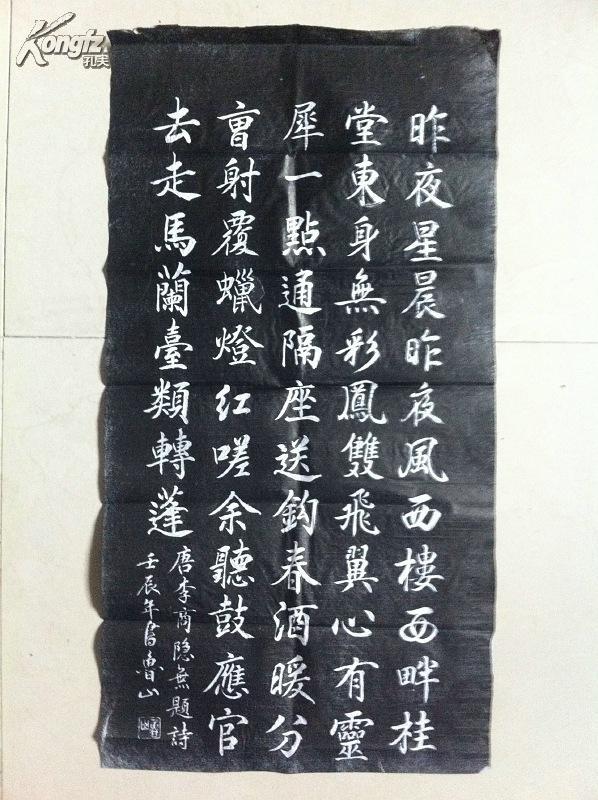 昨夜星晨昨夜風西樓西畔桂
堂東身無彩鳳雙飛翼心有靈
犀一點通隔座送鈎春酒暖分
曺射覆蠟燈紅嗟余聽鼓應官
去走馬蘭臺類轉蓬
唐李商隐無題詩
壬辰年書魯山
Kongfz
孔夫